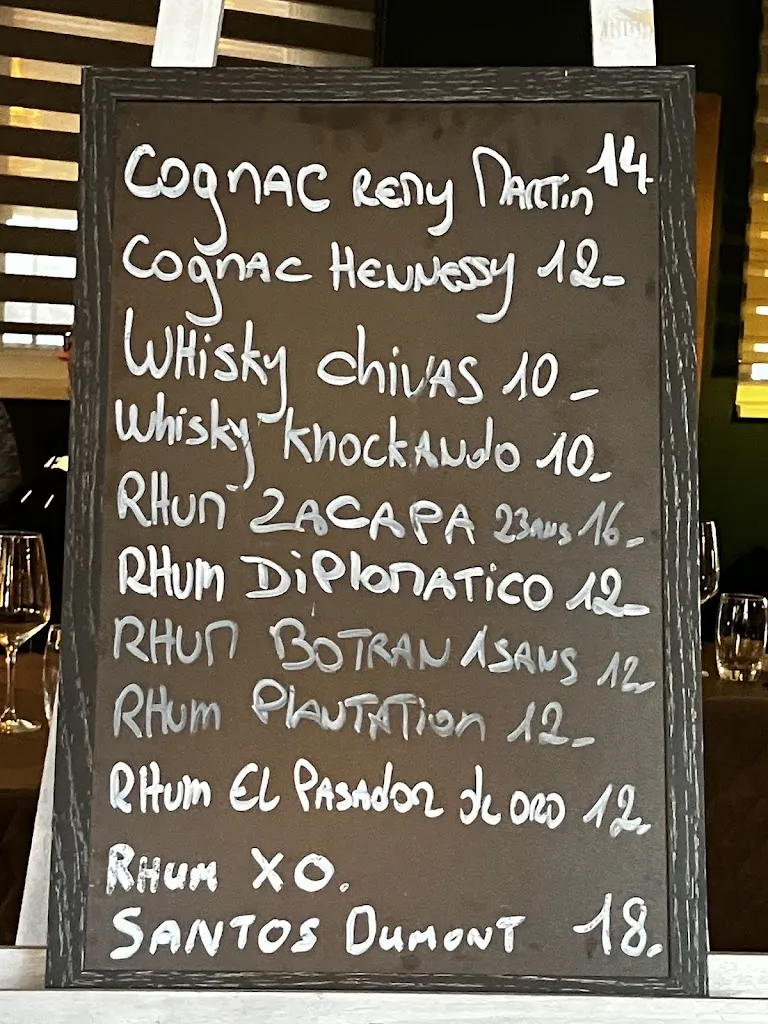 COGNAC REMY MARTIN 14.
COGNAC HENNESSY 12-
WHISKY CHIVAS 10-
Whisky KNOCKANDO 10-
RHUM ZACAPA 23ans 16-
RHUM DIPLOMATICO 12-
RHUM BOTRAN 15ANS 12-
RHUM PLANTATION 12-
RHUM EL PASADOR de ORO 12-
RHUM XO.
SANTOS DUMONT 18.